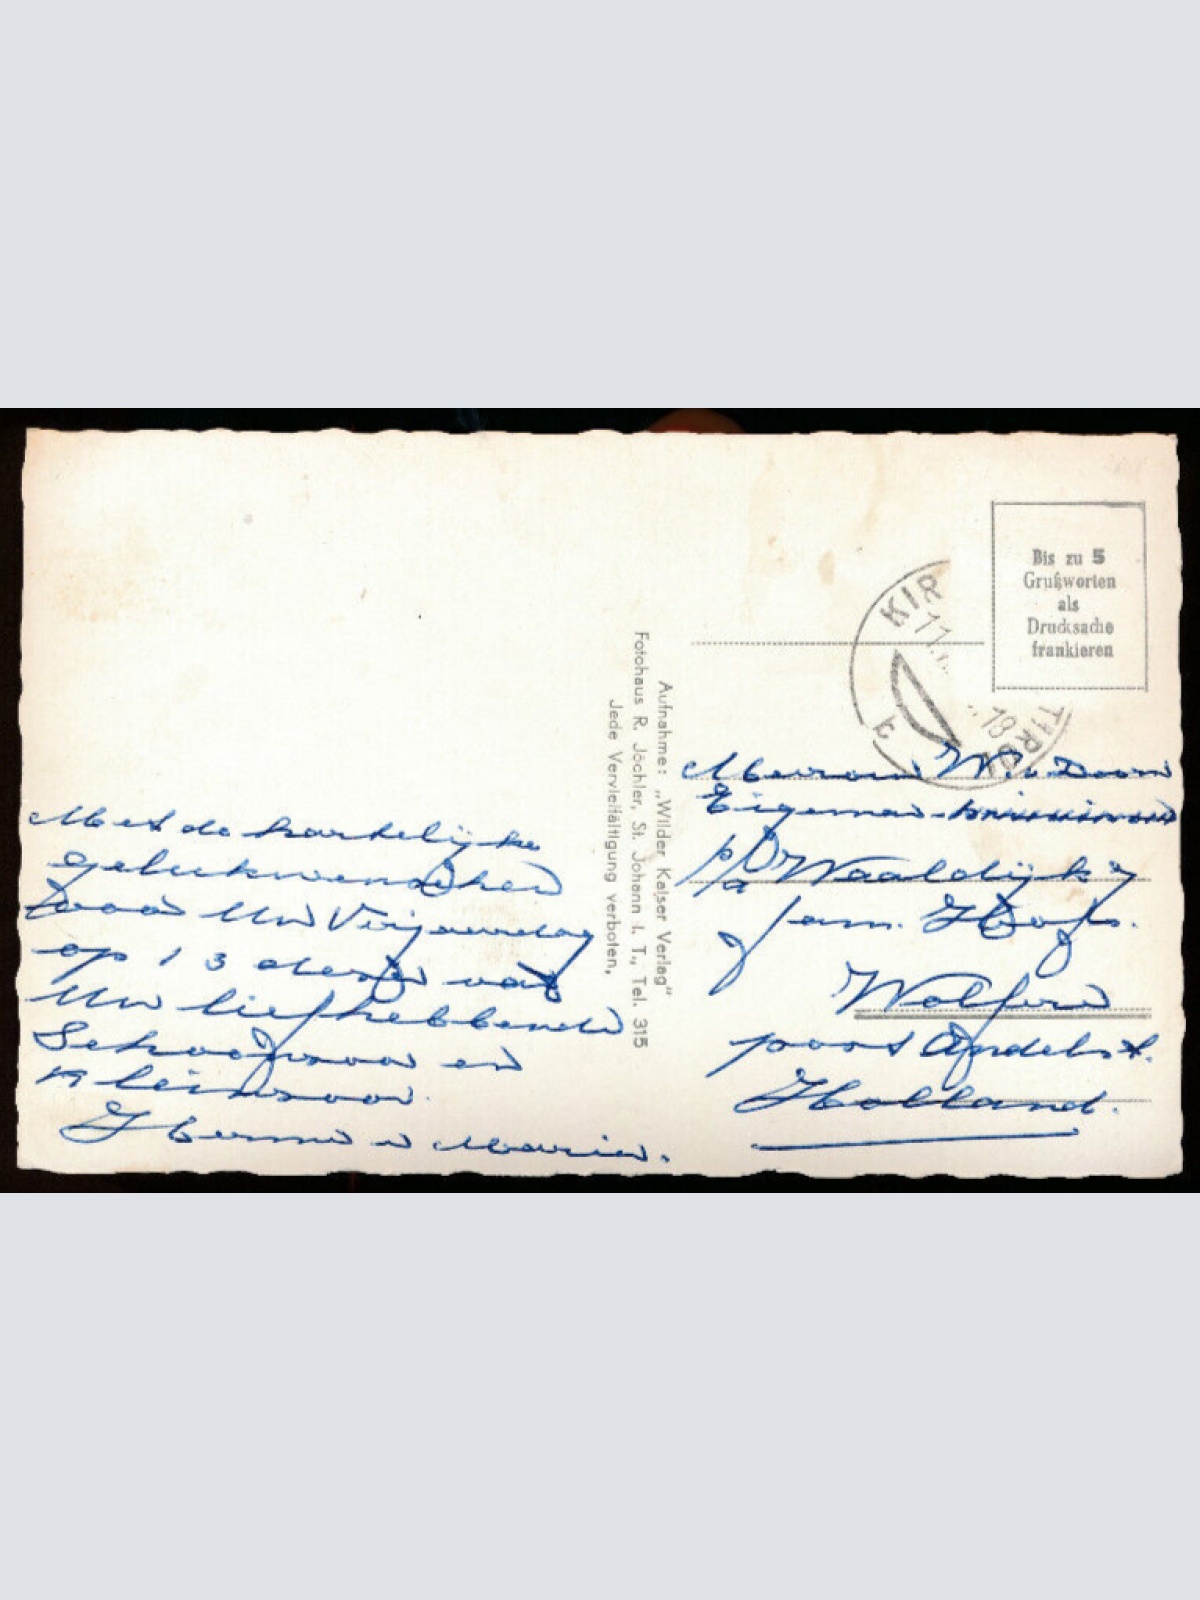 Met de hartelijke
gelukwenschen
voor Uw Verjaardag
op 13 dezer van
Uw liefhebbende
Schoonzoon en
Kleinzoon.
Herman en Marin.
Aufnahme: „Wilder Kaiser Verlag"
Fotohaus R. Jöchler, St. Johann i. T., Tel. 315
Jede Vervielfältigung verboten.
Bis zu 5
Grußworten
als
Drucksache
frankieren
KIR
11.
18
TIROL
Mevrouw W. v. Doorn
Eigeman
p/a Waaldijk
fam. Hoofs.
Wolferen
post Andelst.
Holland.